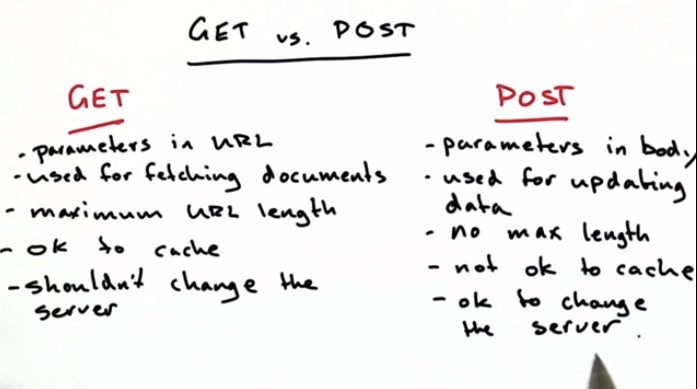 GET vs. POST
GET
- parameters in URL
- used for fetching documents
- maximum URL length
- ok to cache
- shouldn't change the
server
POST
- parameters in body
- used for updating
data
- no max length
- not ok to cache
- ok to change
the server.